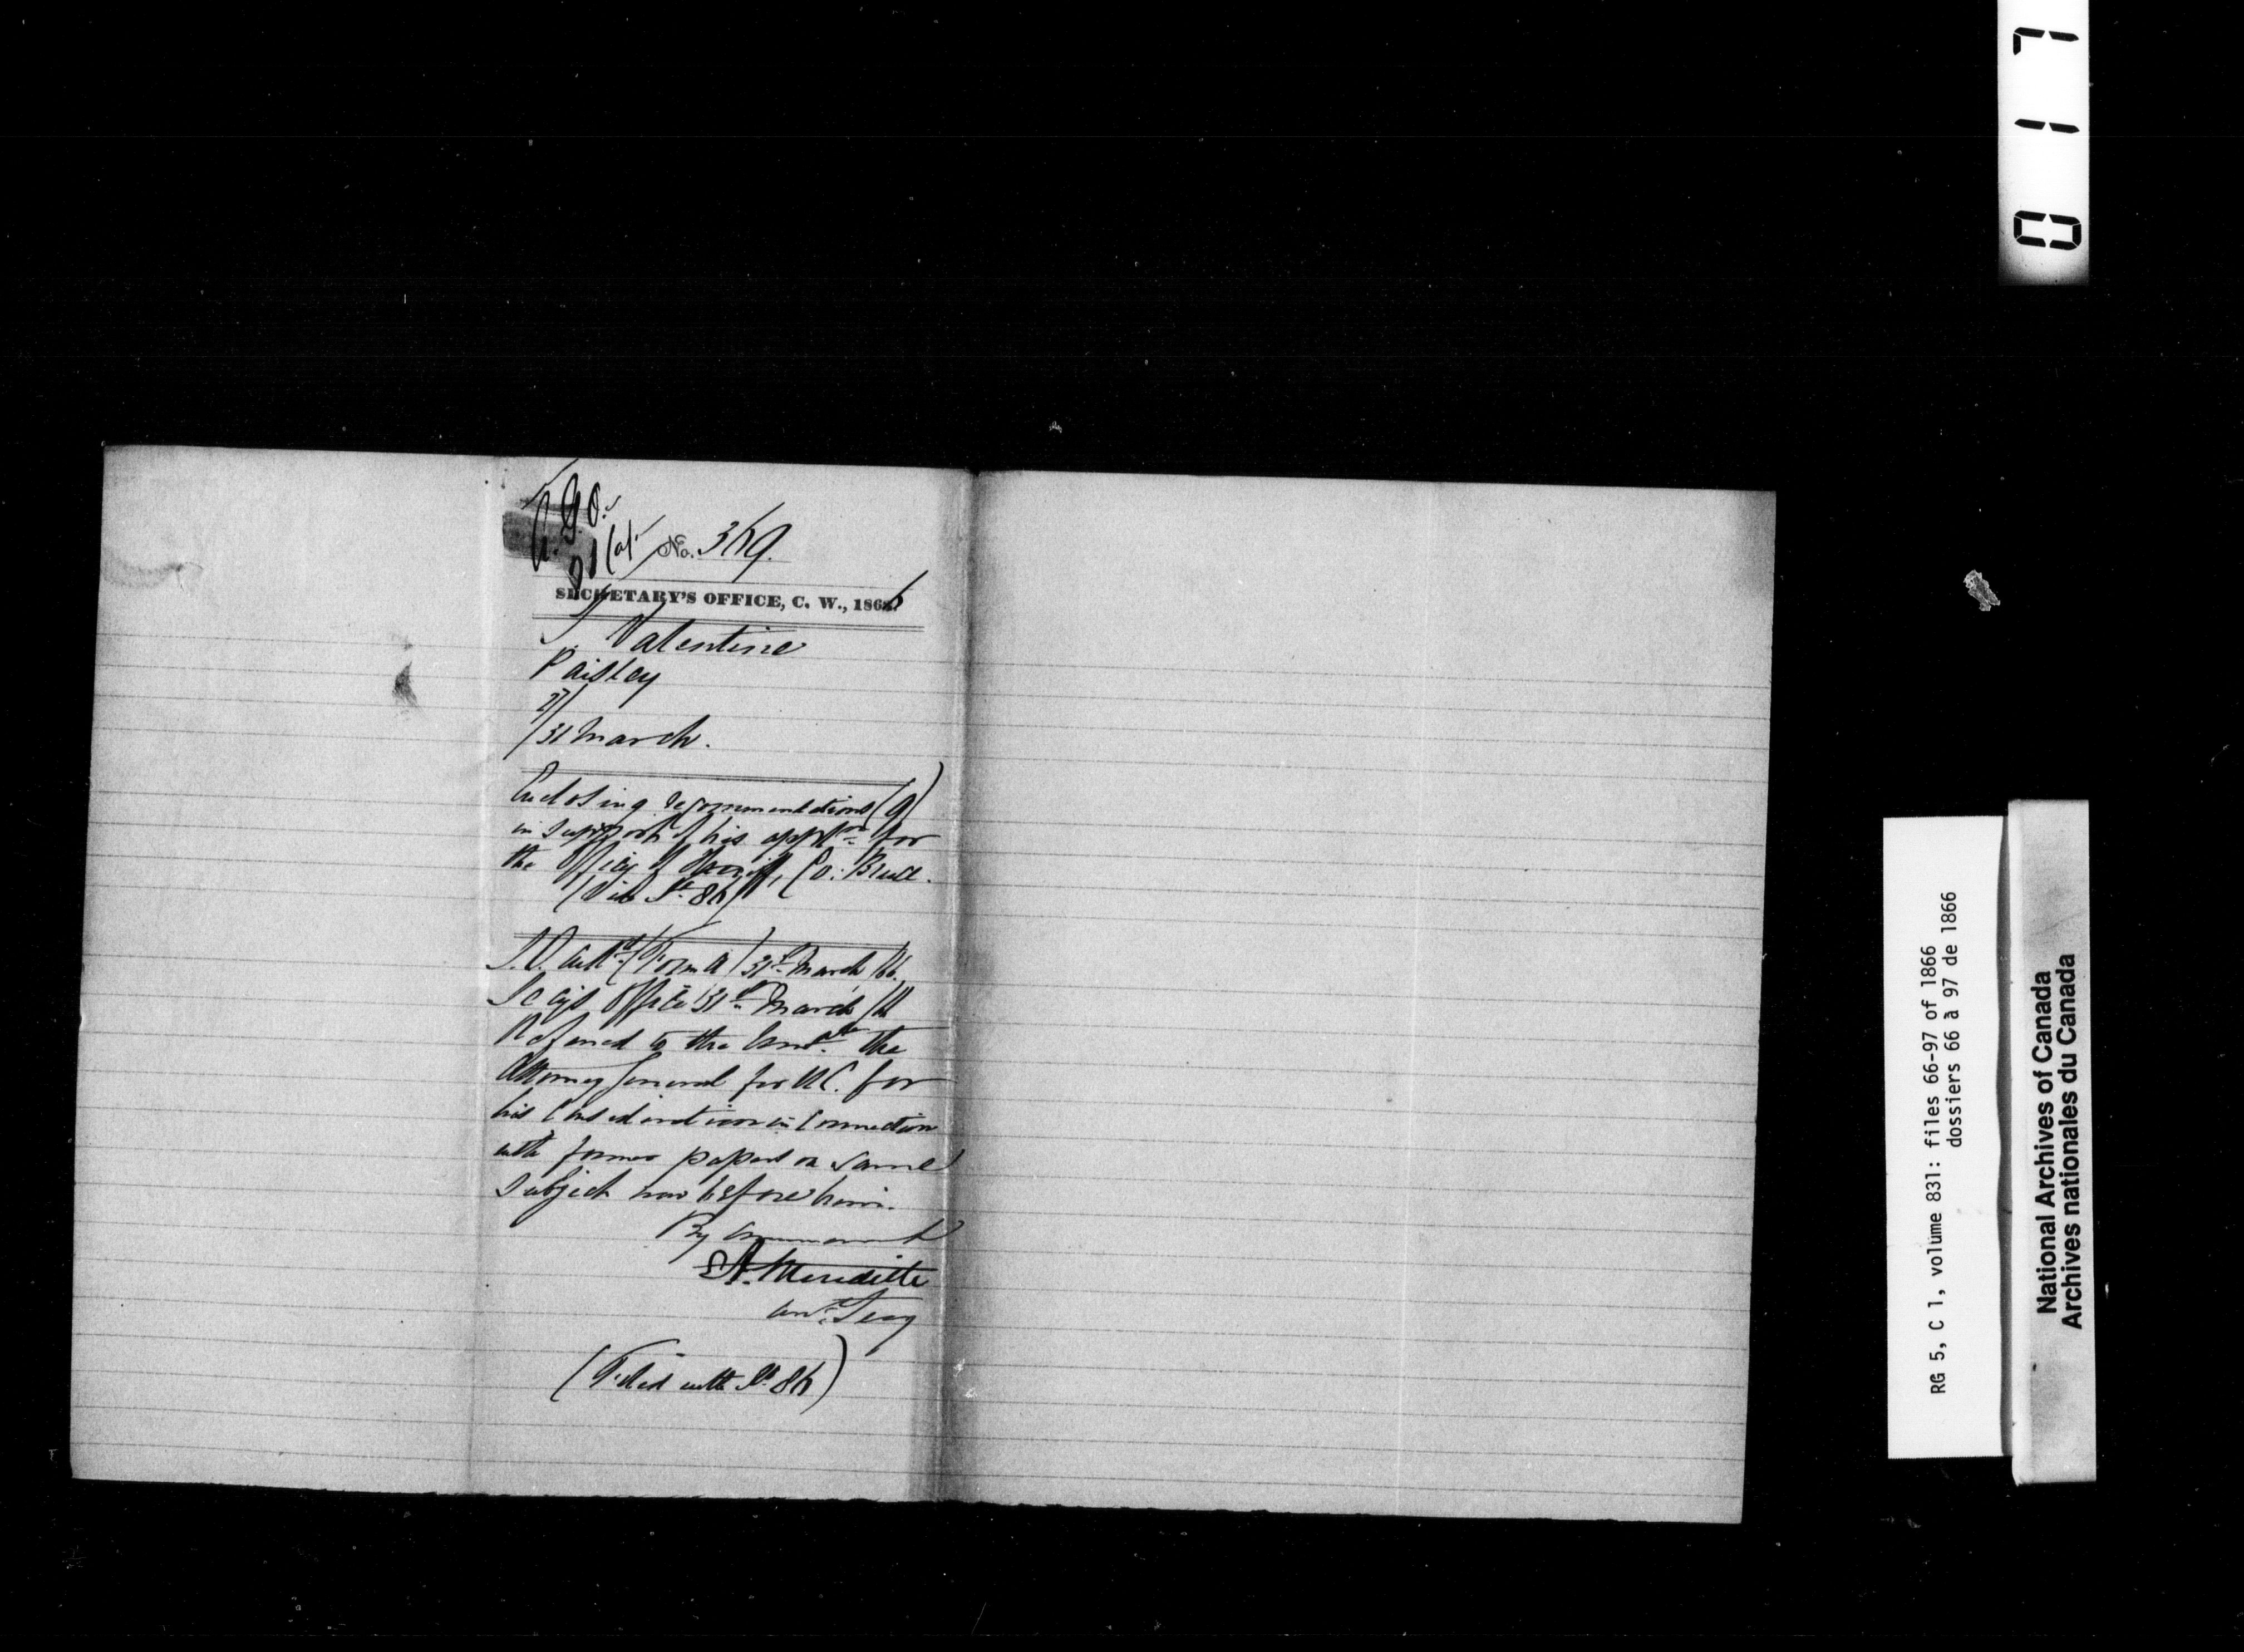 A. G. O.
No. 369.
SECRETARY'S OFFICE, C. W., 1866
S. Valentine
Paisley
27/
/31 March.
Enclosing recommendations (9)
in support of his applion for
the office of Sheriff, Co: Bruce.
(Vide 86)
S.V. ackd (Form A) 31st March /66.
Secys Office 31st March /66
Referred to the Honble the
Attorney General for U.C. for
his consideration in connection
with former papers on same
subject now before him.
By command
E A. Meredith
Asst Secy
(Filed with 86)
0 1 7
RG 5, C 1, volume 831: files 66-97 of 1866
dossiers 66 à 97 de 1866
National Archives of Canada
Archives nationales du Canada